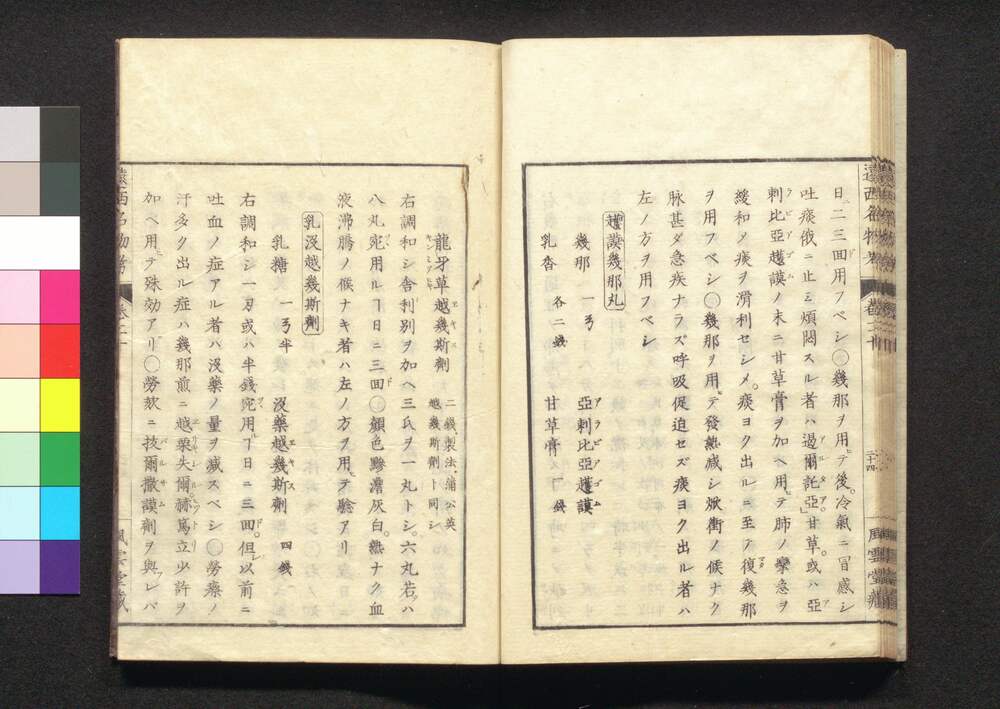 日ニ二三回用フベシ〇幾那ヲ用ヒテ後冷氣ニ冒感シ
吐痰俄ニ止ミ煩悶スル者ハ過爾託亞甘草或ハ亞
剌比亞越謨ノ末ニ甘草膏ヲ加ヘ用テ肺ノ攣急ヲ
緩和メ痰ヲ滑利セシメ痰ヨク出ルニ至テ復幾那
ヲ用フベシ〇幾那ヲ用ヒテ發熱減シ焮衝ノ候ナク
脉甚ダ急疾ナラズ呼吸促迫セズ痰ヨク出ル者ハ
左ノ方ヲ用フベシ
越謨幾那丸
幾那 一弓 亞剌比亞越謨
乳香 各二錢 甘草膏
龍牙草越幾斯劑 二錢製法蒲公英越幾斯劑ト同シ
右調和シ舎利別ヲ加ヘ三氏ヲ一丸トシ六丸若ハ
八丸宛用ルヿ日ニ三回〇顔色黲澹灰白熱ナク血
液沸騰ノ候ナキ者ハ左ノ方ヲ用ヒテ驗アリ
乳没越幾斯劑
乳糖 一弓半 没藥越幾斯劑 四錢
右調和シ一刀或ハ半錢宛用ルヿ日ニ三回但シ以前ニ
吐血ノ症アル者ハ没藥ノ量ヲ減スベシ〇勞療ノ
汗多ク出ル症ハ幾那煎ニ越栗失爾赫篤立少許ヲ
加ヘ用ヒテ殊効アリ〇勞欬ニ抜爾撒謨劑ヲ與レバ
遠西名物考
風雲堂藏